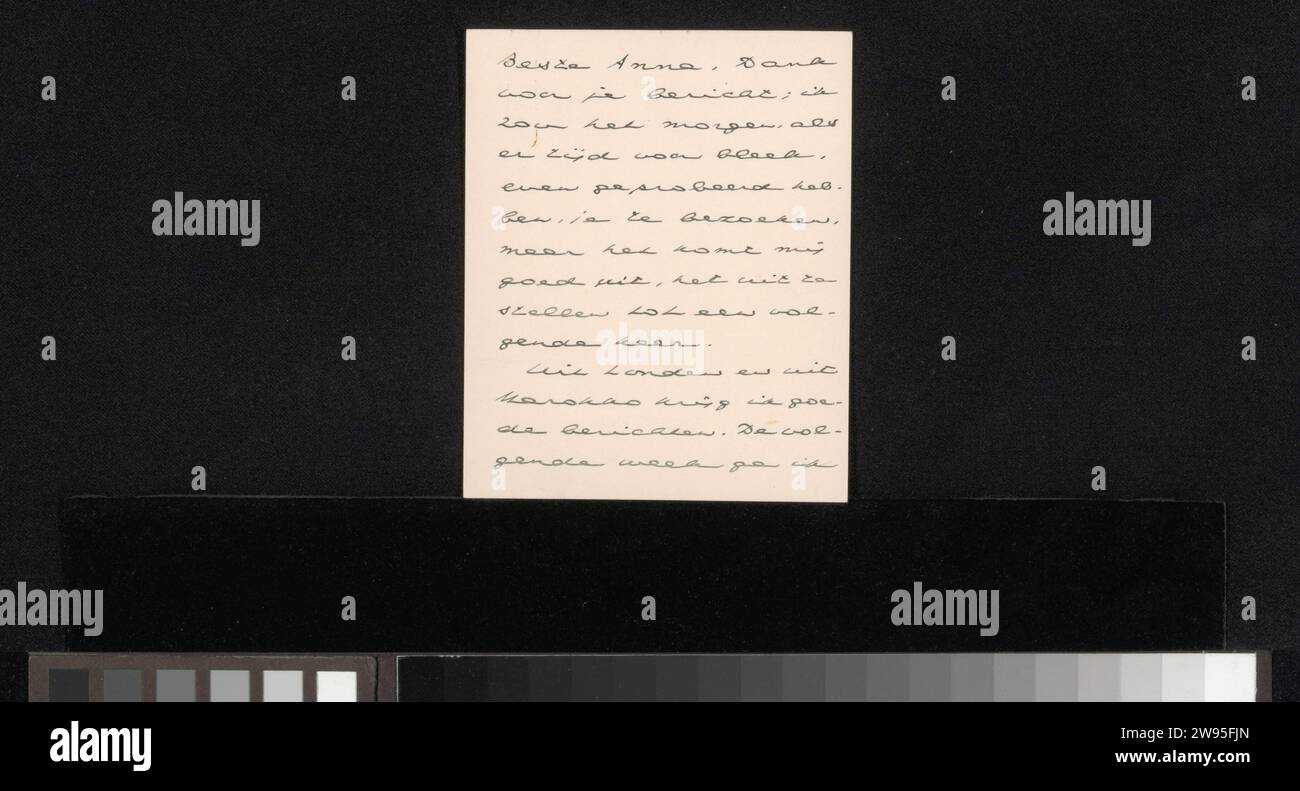 Beste Anna, Dank
voor je bericht; ik
zou het morgen, als
er tijd voor bleek,
even geprobeerd heb-
ben, je te bezoeken,
maar het komt mij
goed uit, het uit te
stellen tot een vol-
gende keer.
Uit Londen en uit
Marokko krijg ik goe-
de berichten. De vol-
gende week ga ik
alamy
alamy
alamy
alamy
alamy
a
a
a
a
a
a
a
a
a
a
a
a
a
alamy
Image ID: 2W95FJN
www.alamy.com